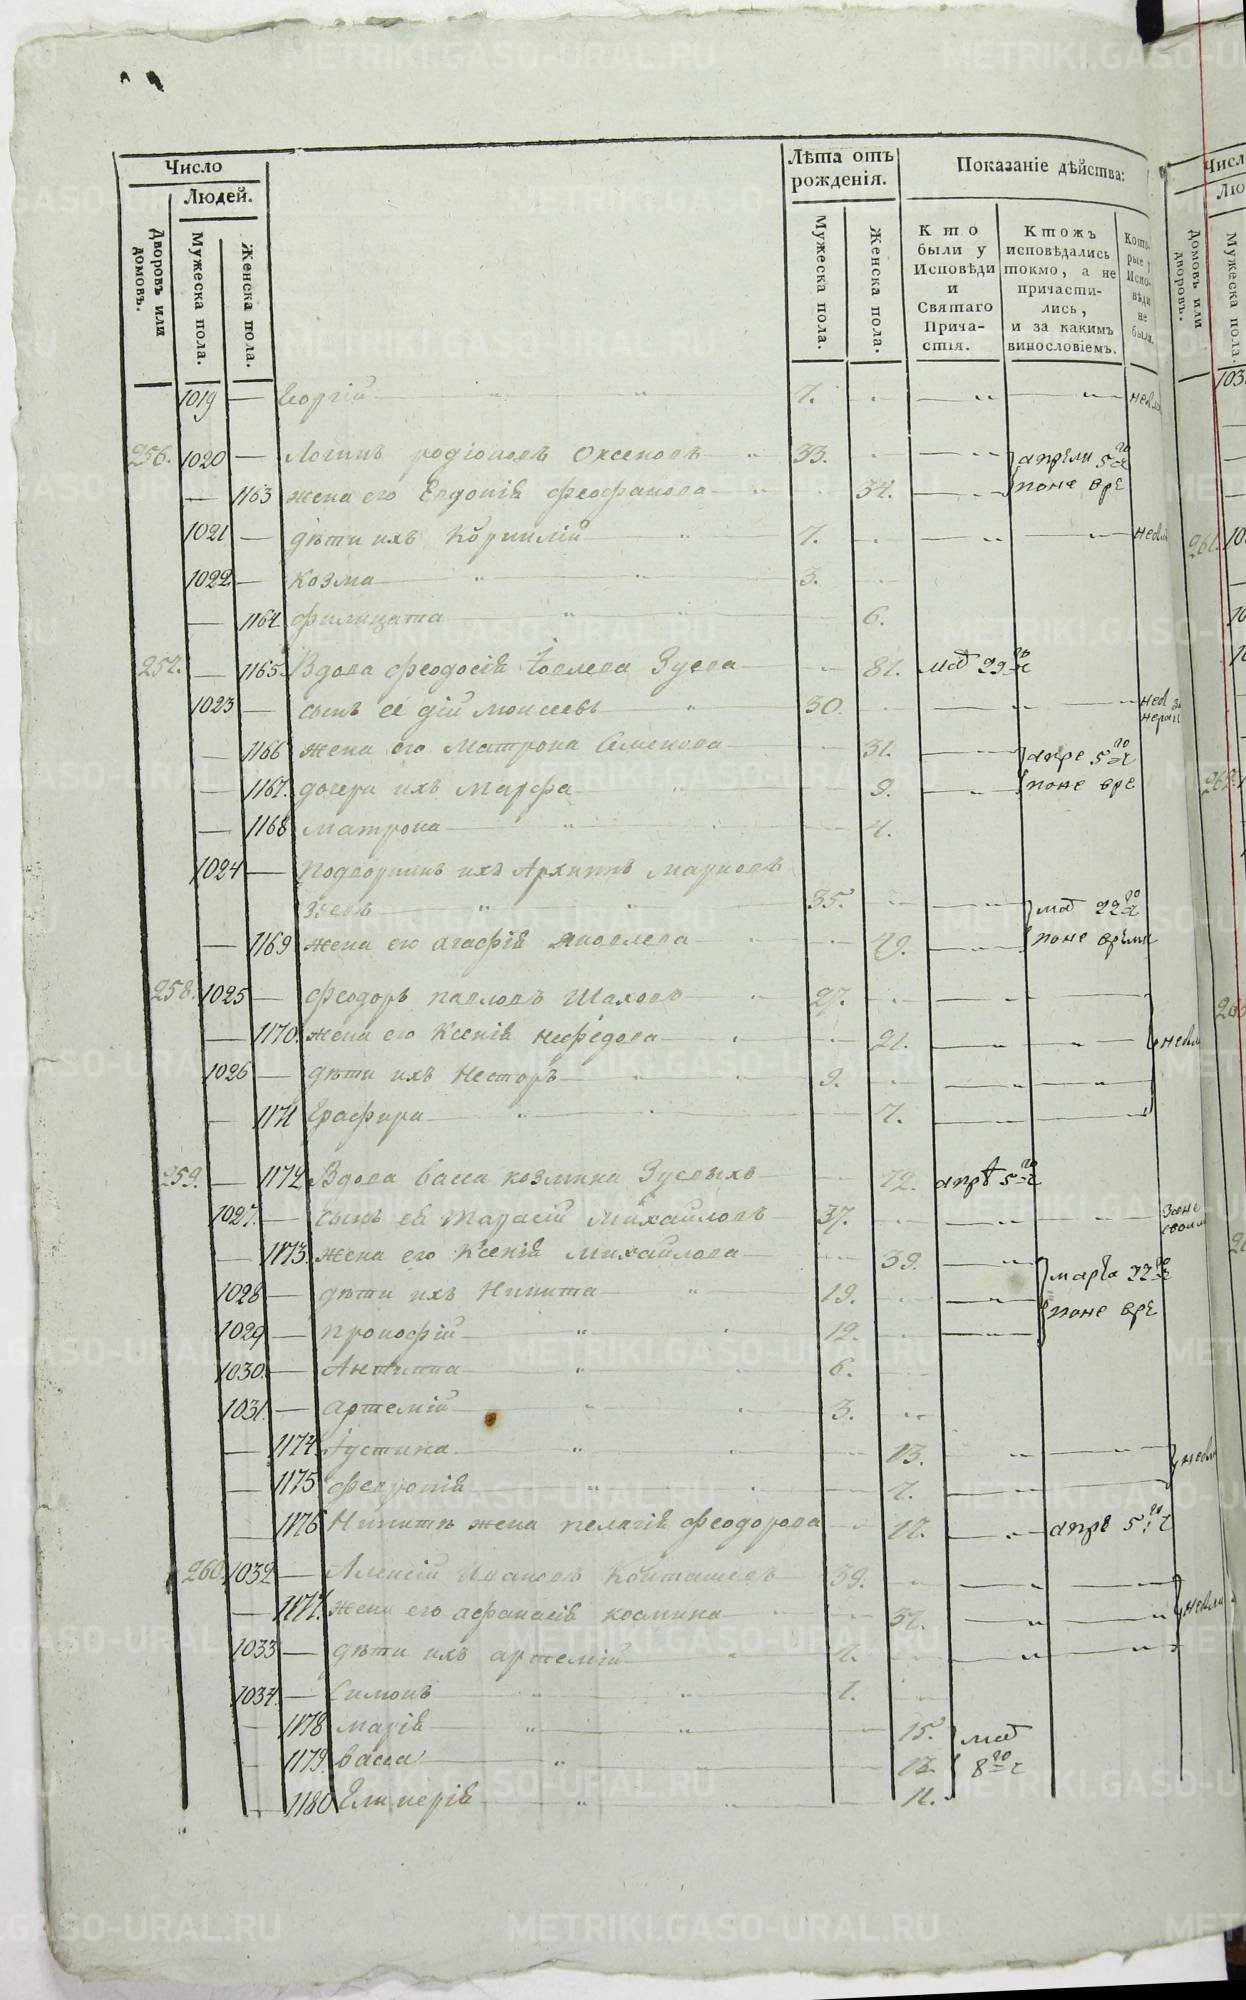 Число
Людей.
Дворовъ или домовъ.
Мужеска пола.
Женска пола.
Лѣта отъ рожденія.
Мужеска пола.
Женска пола.
Показаніе дѣйства:
Кто были у Исповѣди и Святаго Причастія.
Ктожъ исповѣдались токмо, а не причастились, и за какимъ винословіемъ.
Которые у Исповѣди не были.
1019 — Георгій 7.
256. 1020 — Логинъ родіоновъ Оксеновъ 33. апрѣли 5го ч
— 1163 жена его Евдокія феофанова 34. поне вре
1021 — дѣти ихъ Корнилій 7.
1022 — козма 3.
— 1164 филицата 6.
257. — 1165 Вдова феодосія Зуева 81. 29го ч
1023 — сынъ её моисеевъ 30.
— 1166 жена его Матрона Семенова 31. апре 5го ч
— 1167. дочери ихъ Марфа 9. поне вре
— 1168 матрона 4.
1024 — подворникъ ихъ Архипъ
Зуевъ 35. 22го ч
— 1169 жена его агафія Яковлева 49. поне время
258. 1025 — Феодоръ павловъ Шаховъ 27.
— 1170. жена его Ксенія нефедова 21.
1026 — дѣти ихъ Несторъ 9.
— 1171 7.
259. — 1172 Вдова Васса козмина Зуевыхъ 72. апрѣ 5го ч
1027. — сынъ её Тарасій Михайловъ 37.
— 1173. жена его Ксенія Михайлова 39. марта 22го ч
1028 — дѣти ихъ Никита 19. поне вре
1029 — прокофій 12.
1030. — Антипа 6.
1031. — артемій 3.
— 1174. Іустина 13.
— 1175 февронія 7.
— 1176 Никиты жена пелагія феодорова 17. апре 5го ч
260. 1032 — Алексій Ивановъ 39.
— 1177. жена его афанасія козмина 37.
1033 — дѣти ихъ артемій
1034. — Симонъ 1.
1178 марія 15.
1179. васса 13. 8го ч
1180 11.
METRIKI.GASO-URAL.RU